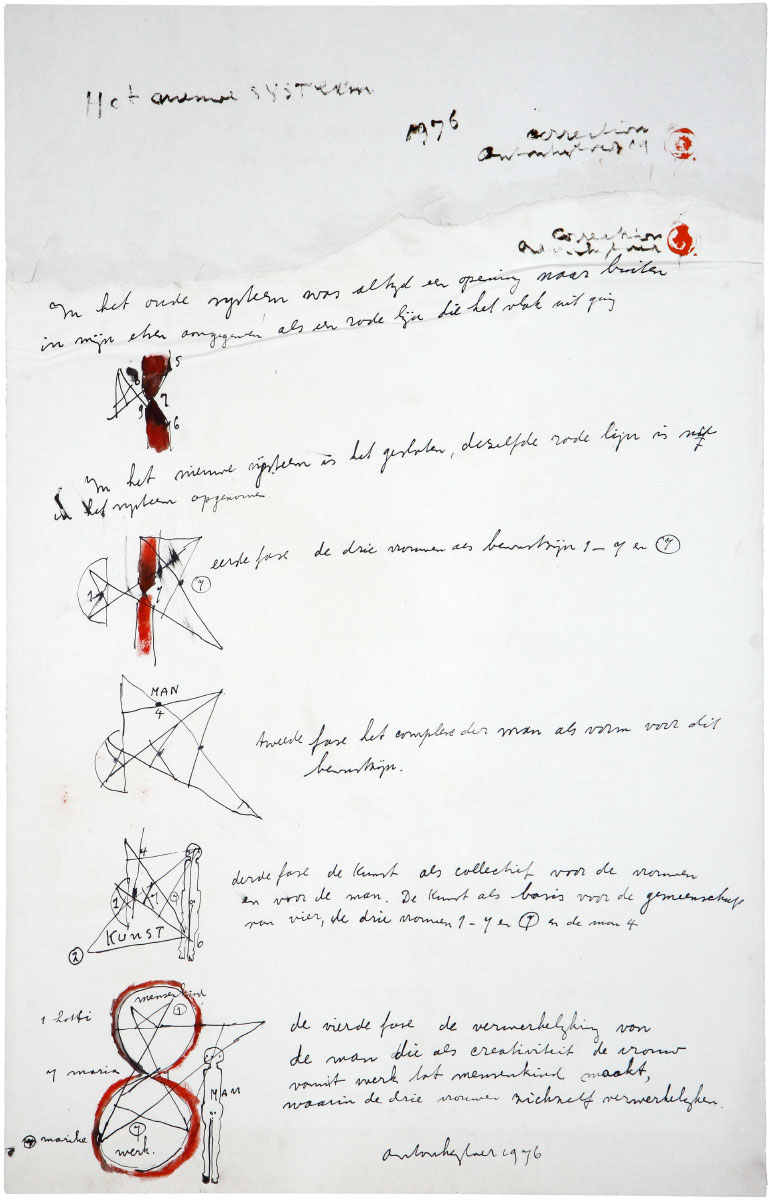 Het nieuwe SYSTEEM
1976
correction
antonheyboer
correction
antonheyboer
In het oude systeem was altyd een opening naar buiten
in mijn etsen aangegeven als een rode lijn die het vlak uit ging
5
9 7
6
In het nieuwe systeem is het gesloten, dezelfde rode lijn is
in het systeem opgenomen
eerste fase de drie vrouwen als bewustzijn 1 – 7 en 7
1 7 7
MAN
4
tweede fase het complex der man als vorm voor dit
bewustzijn.
4
derde fase de Kunst als collectief voor de vrouwen
en voor de man. De Kunst als basis voor de gemeenschap
van vier, de drie vrouwen 1 – 7 en 7 en de man 4
1 7
KUNST 6
2
mensenkind
1
1 lotti
de vierde fase de verwerkelyking van
de man die als creativiteit de vrouw
7 maria
MAN
vanuit werk tot mensenkind maakt,
waarin de drie vrouwen zichzelf verwerkelyken.
7
7 marike
werk.
antonheyboer 1976